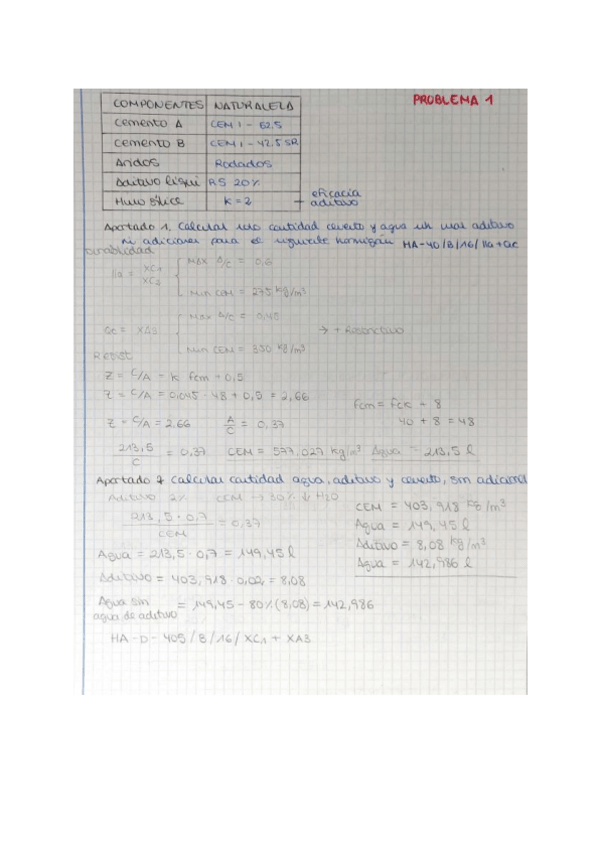 PROBLEMA 1
COMPONENTES NATURALEZA
Cemento A CEM I - 62.5
Cemento B CEM I - 42.5 SR
Áridos Rodados
Aditivo líqui RS 20%
Humo sílice K=2
eficacia
aditivo
Apartado 1. Calcular cantidad cemento y agua sin usar aditivo
ni adiciones para el siguiente hormigón HA-40/B/16/IIa+Qc
Durabilidad
IIa = XC1 XC2 { Max A/C = 0,6
Min CEM = 275 kg/m³
Qc = XA3 { Max A/C = 0,45
→ + Restrictivo
Min CEM = 350 kg/m³
Resist
Z = C/A = K fcm + 0,5
Z = C/A = 0,045 · 48 + 0,5 = 2,66
fcm = fck + 8
40 + 8 = 48
Z = C/A = 2,66 A/C = 0,37
213,5/C = 0,37 CEM = 577,027 kg/m³ Agua = 213,5 l
Apartado 2 Calcular cantidad agua, aditivo y cemento, sin adicional
Aditivo 2% CEM → 30% ↓ H2O
213,5 · 0,7/CEM = 0,37
CEM = 403,918 kg/m³
Agua = 149,45 l
Aditivo = 8,08 kg/m³
Agua = 142,986 l
Agua = 213,5 · 0,7 = 149,45 l
Aditivo = 403,918 · 0,02 = 8,08
Agua sin
agua de aditivo = 149,45 - 80% (8,08) = 142,986
HA-D-405/B/16/XC1 + XA3